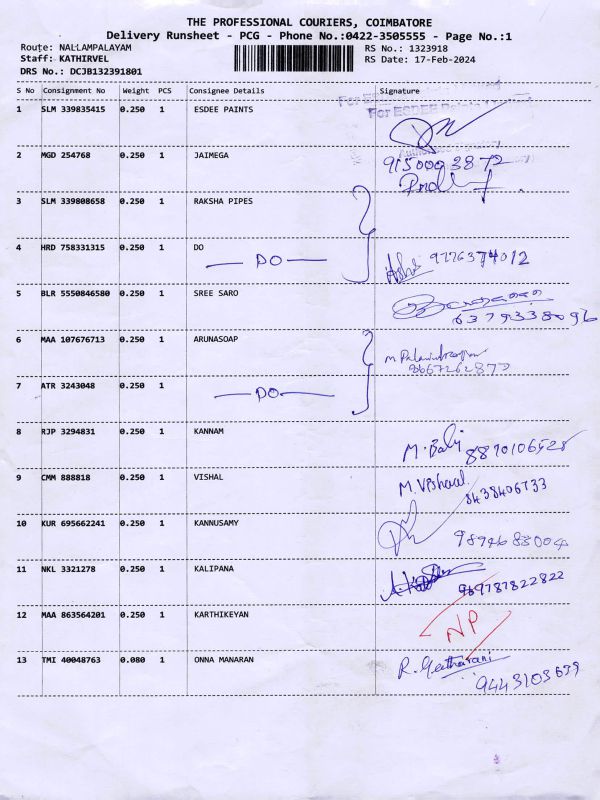 THE PROFESSIONAL COURIERS, COIMBATORE
Delivery Runsheet - PCG - Phone No.:0422-3505555 - Page No.:1
Route: NALLAMPALAYAM RS No.: 1323918
Staff: KATHIRVEL RS Date: 17-Feb-2024
DRS No.: DCJB132391801
S No Consignment No Weight PCS Consignee Details Signature
1 SLM 339835415 0.250 1 ESDEE PAINTS
For ESDEE Paints
2 MGD 254768 0.250 1 JAIMEGA 915000 3872
3 SLM 339808658 0.250 1 RAKSHA PIPES
4 HRD 758331315 0.250 1 DO
— DO — 9776374012
5 BLR 5550846580 0.250 1 SREE SARO
6379338096
6 MAA 107676713 0.250 1 ARUNASOAP
7 ATR 3243048 0.250 1
— DO —
8 RJP 3294831 0.250 1 KANNAM M. Balaji
9 CMM 888818 0.250 1 VISHAL M. Vishaal
8438406733
10 KUR 695662241 0.250 1 KANNUSAMY
9894683004
11 NKL 3321278 0.250 1 KALIPANA
12 MAA 863564201 0.250 1 KARTHIKEYAN
NP
13 TMI 40048763 0.080 1 ONNA MANARAN R. Geetharani
9443103639